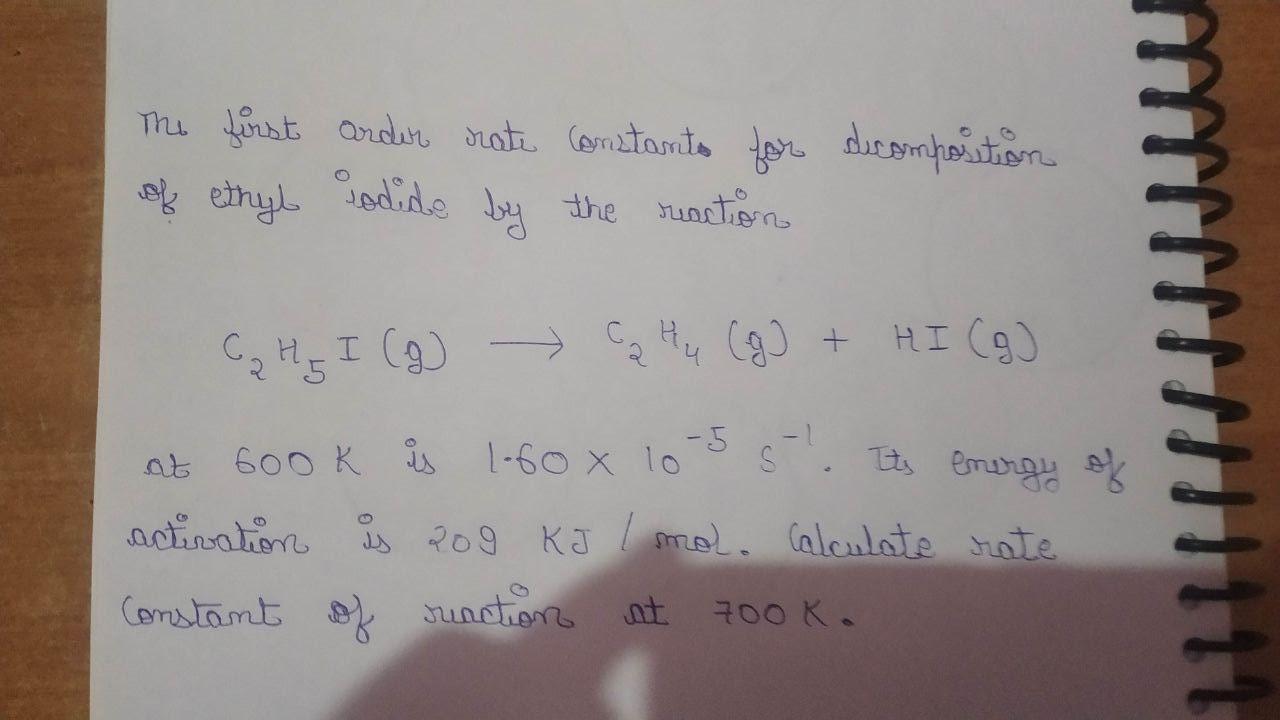 The first order rate constants for decomposition
of ethyl iodide by the reaction
C₂H₅I (g) ⟶ C₂H₄ (g) + HI (g)
at 600 K is 1.60 × 10⁻⁵ s⁻¹. Its energy of
activation is 209 KJ / mol. Calculate rate
constant of reaction at 700 K.